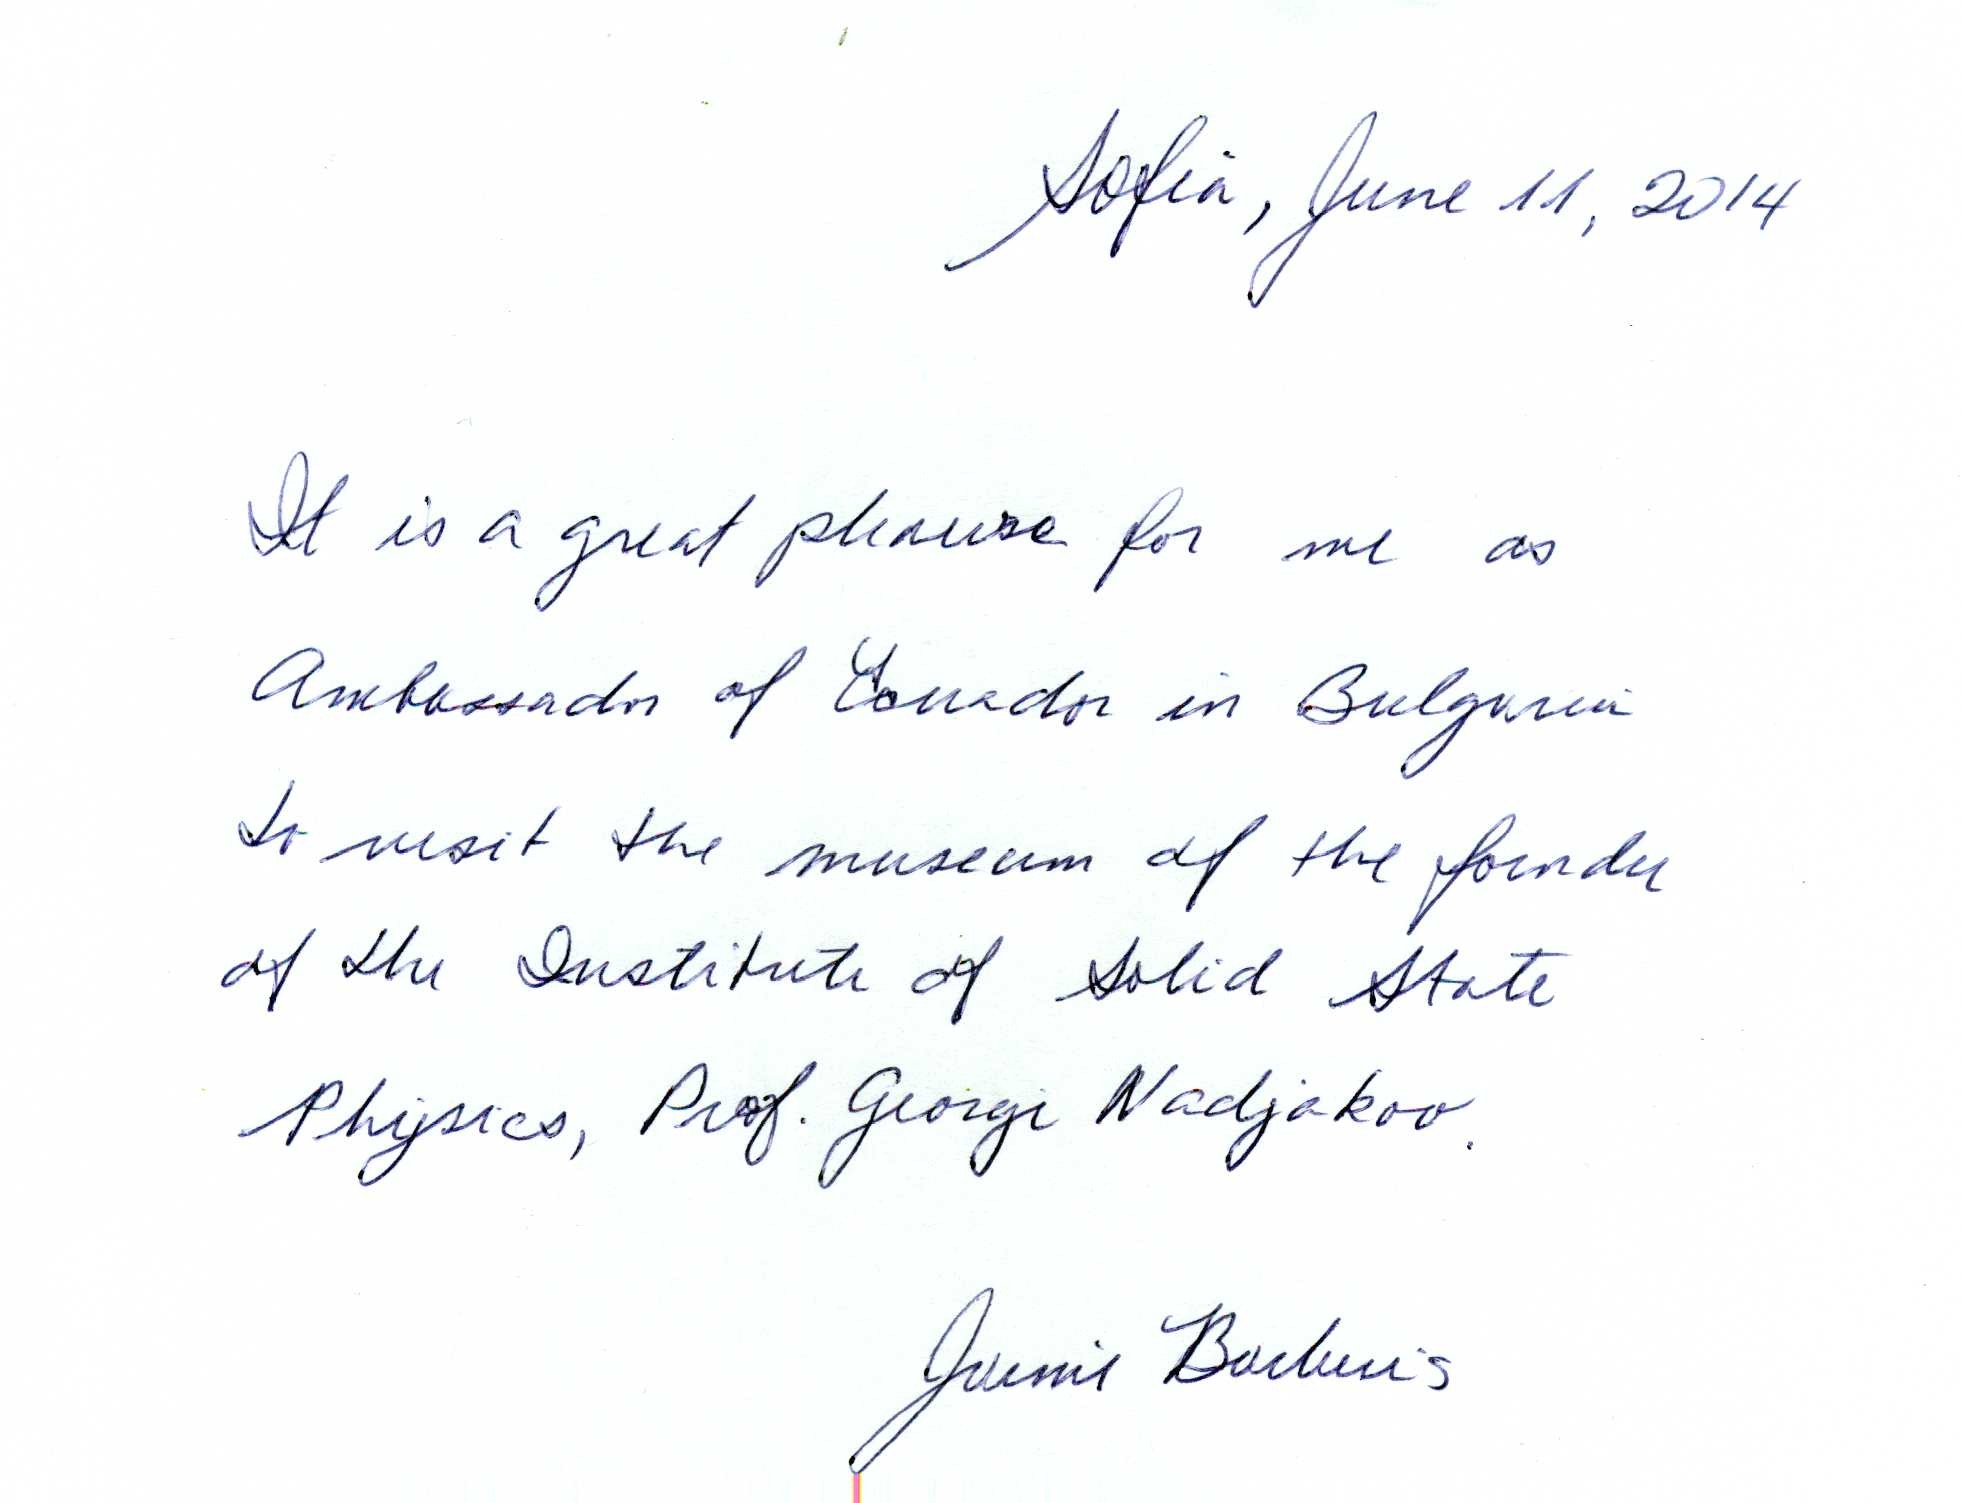 Sofia, June 11, 2014
It is a great pleasure for me as
Ambassador of Ecuador in Bulgaria
to visit the museum of the founder
of the Institute of Solid State
Physics, Prof. Georgi Nadjakov.
Jaime Barberis